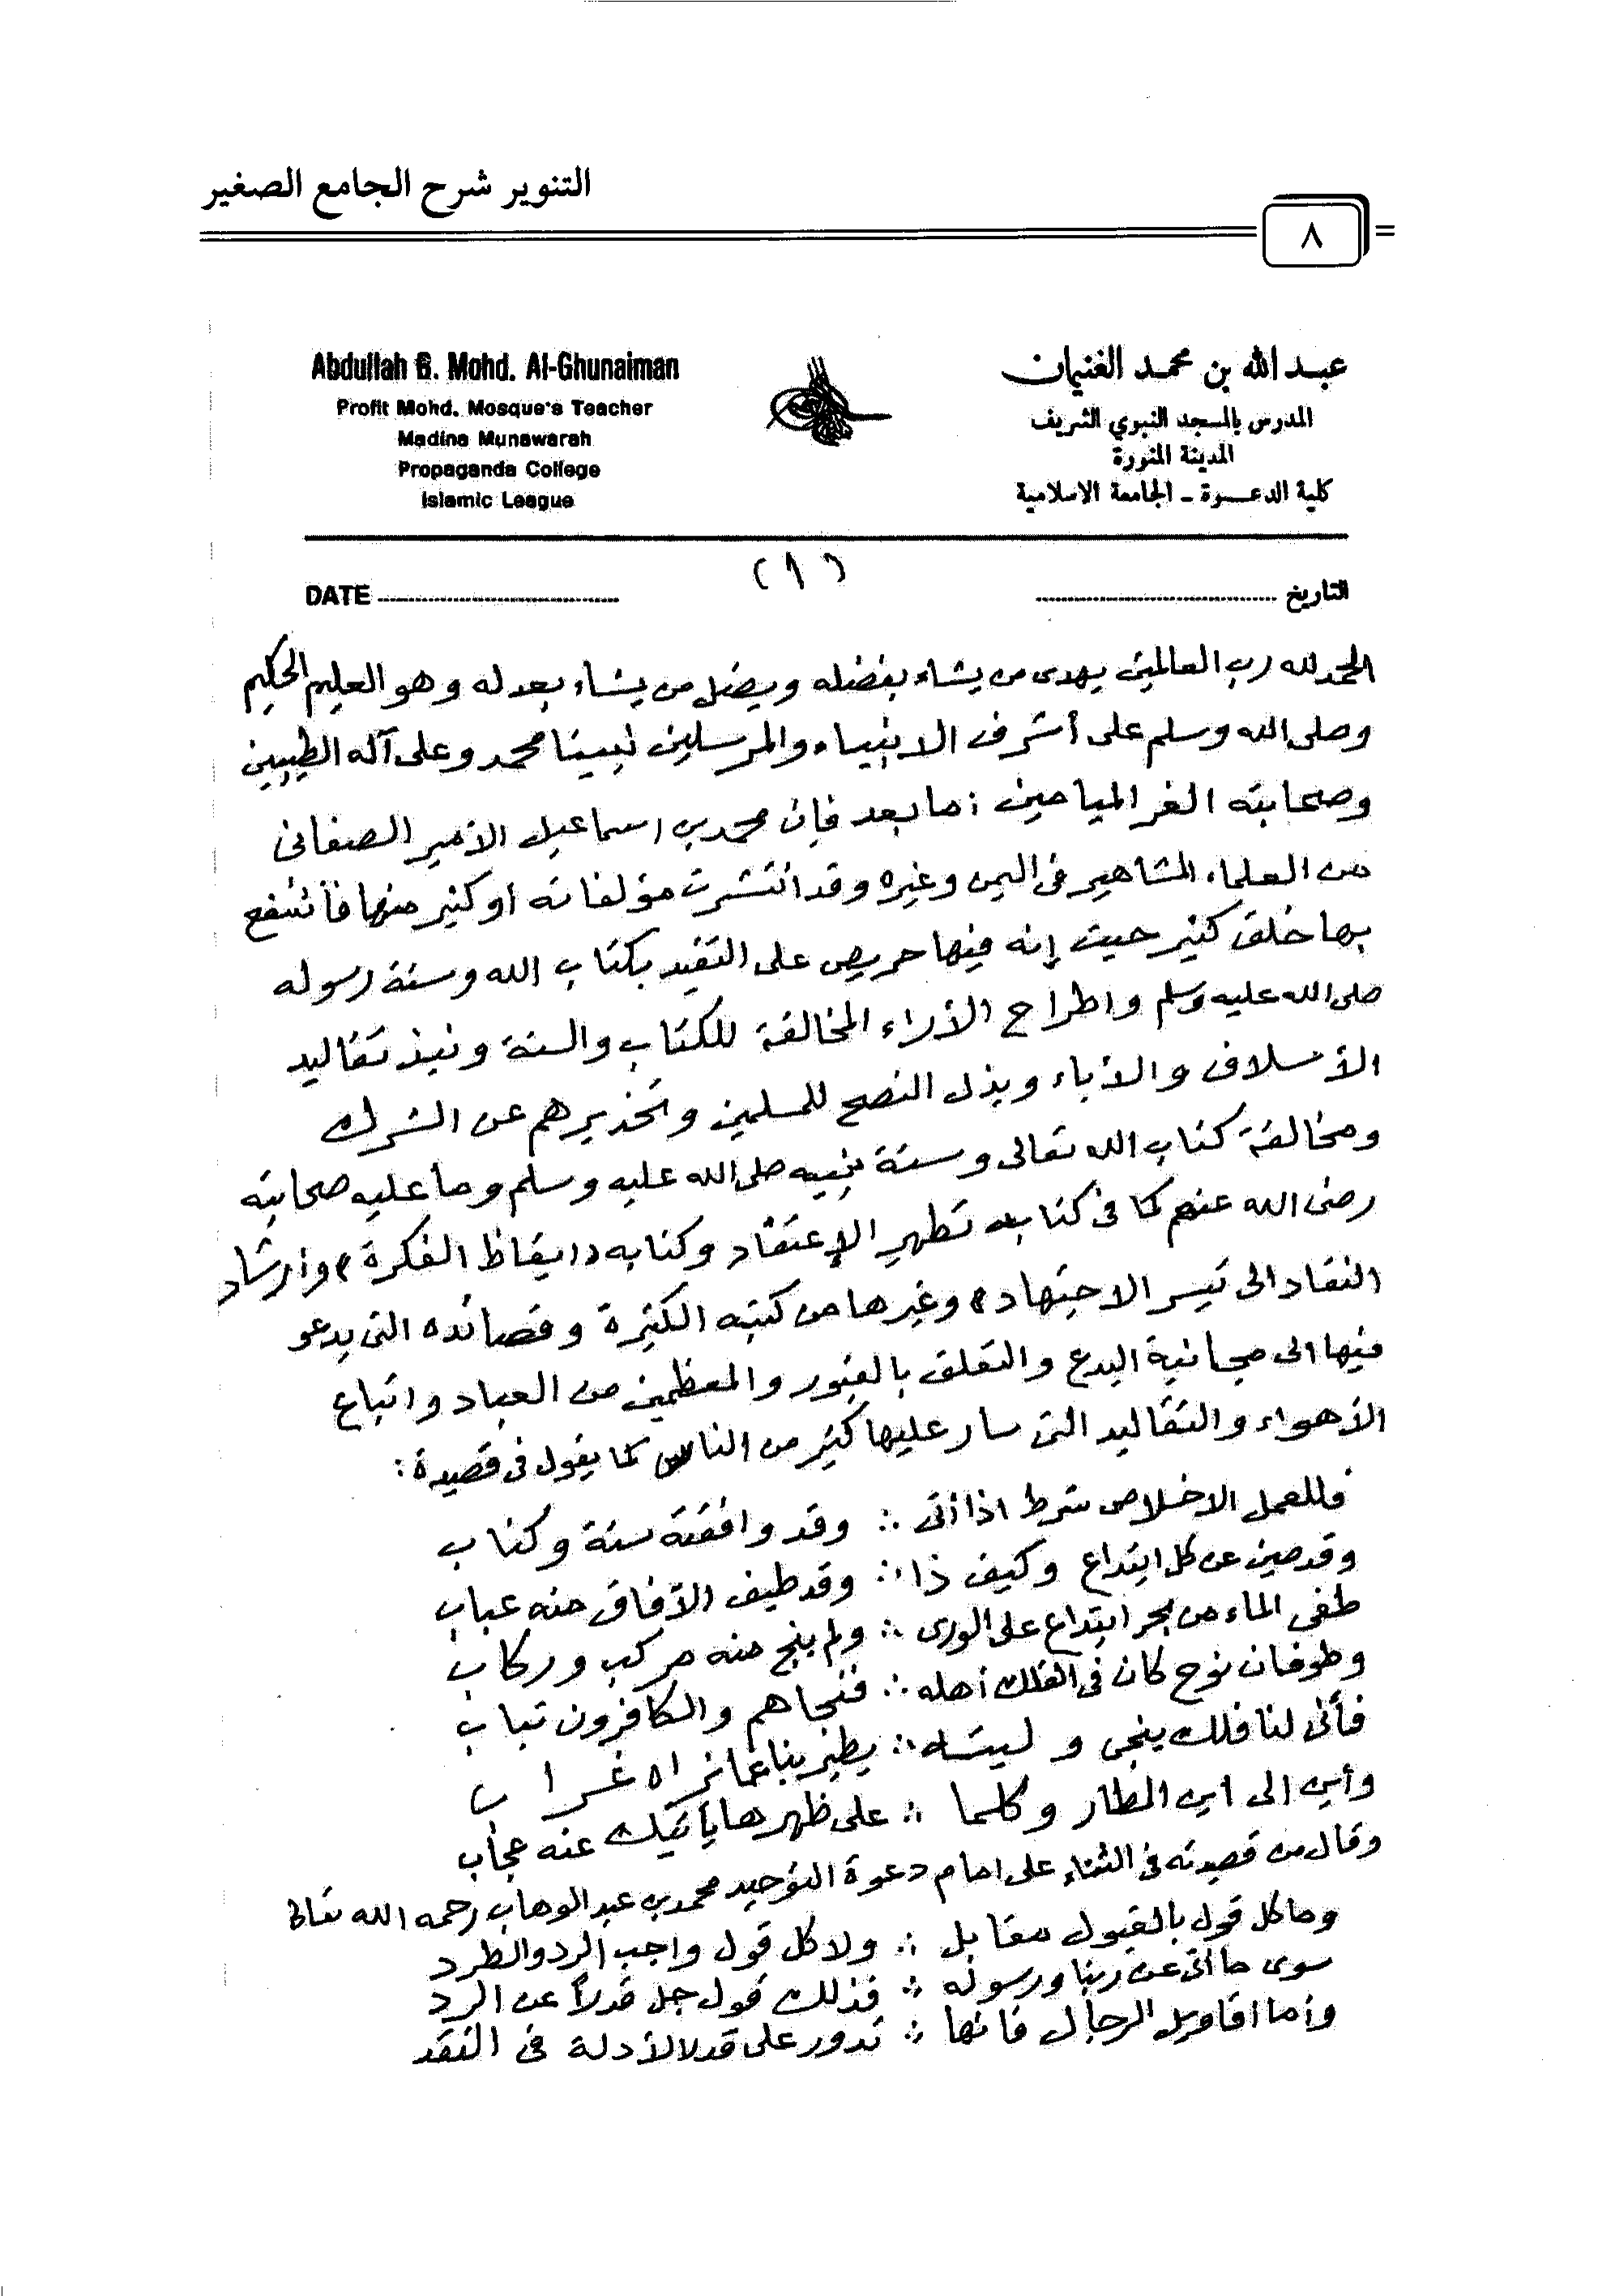 التنوير شرح الجامع الصغير
٨
عبد الله بن محمد الغنيمان
المدرس بالمسجد النبوي الشريف
المدينة المنورة
كلية الدعوة - الجامعة الاسلامية
Abdullah B. Mohd. Al-Ghunaiman
Profit Mohd. Mosque's Teacher
Madina Munawarah
Propaganda College
Islamic League
(١)
التاريخ
DATE
الحمد لله رب العالمين يهدى من يشاء بفضله ويضل من يشاء بعدله وهو العليم الحكيم
وصلى الله وسلم على أشرف الانبياء والمرسلين نبينا محمد وعلى آله الطيبين
وصحابته الغر الميامين أما بعد فإن محمد بن اسماعيل الأمير الصنعانى
من العلماء المشاهير فى اليمن وغيره وقد انتشرت مؤلفاته او كثير منها فأنتفع
بها خلق كثير حيث إنه فيها حريص على التقيد بكتاب الله وسنة رسوله
صلى الله عليه وسلم واطراح الأراء المخالفة للكتاب والسنة ونبذ تقاليد
الأسلاف والأباء وبذل النصح للمسلمين وتحذيرهم عن الشرك
ومخالفة كتاب الله تعالى وسنة نبيه صلى الله عليه وسلم وما عليه صحابته
رضى الله عنهم كما فى كتابه تطهير الإعتقاد وكتابه ((ايقاظ الفكرة)) وأرشاد
النقاد الى تيسر الاجتهاد)) وغيرها من كتبه الكثيرة وقصائده التى يدعو
فيها الى مجانبة البدع والتعلق بالقبور والمعظمين من العباد واتباع
الأهواء والتقاليد التى سار عليها كثير من الناس كما يقول فى قصيدة:
فللعمل الاخلاص شرط اذا أتى ∴ وقد وافقته سنة وكتاب
وقد صين عن كل ابتداع وكيف ذا ∴ وقد طبق الآفاق منه عباب
طغى الماء من بحر ابتداع على الورى ∴ ولم ينج منه مركب وركاب
وطوفان نوح كان فى الفلك أهله ∴ فنجاهم والكافرون تباب
فأنى لنا فلك ينجى وليته ∴ يطير بنا عما نراه غراب
وأين الى اين المطار وكلما ∴ على ظهرها يأتيك عنه عجاب
وقال من قصيدته فى الثناء على امام دعوة التوحيد محمد بن عبد الوهاب رحمه الله تعالى
وما كل قول بالقبول مقابل ∴ ولا كل قول واجب الرد والطرد
سوى ما اتى عن ربنا ورسوله ∴ فذلك قول جل قدرًا عن الرد
وأما اقاويل الرجال فانها ∴ تدور على قدر الأدلة فى النقد